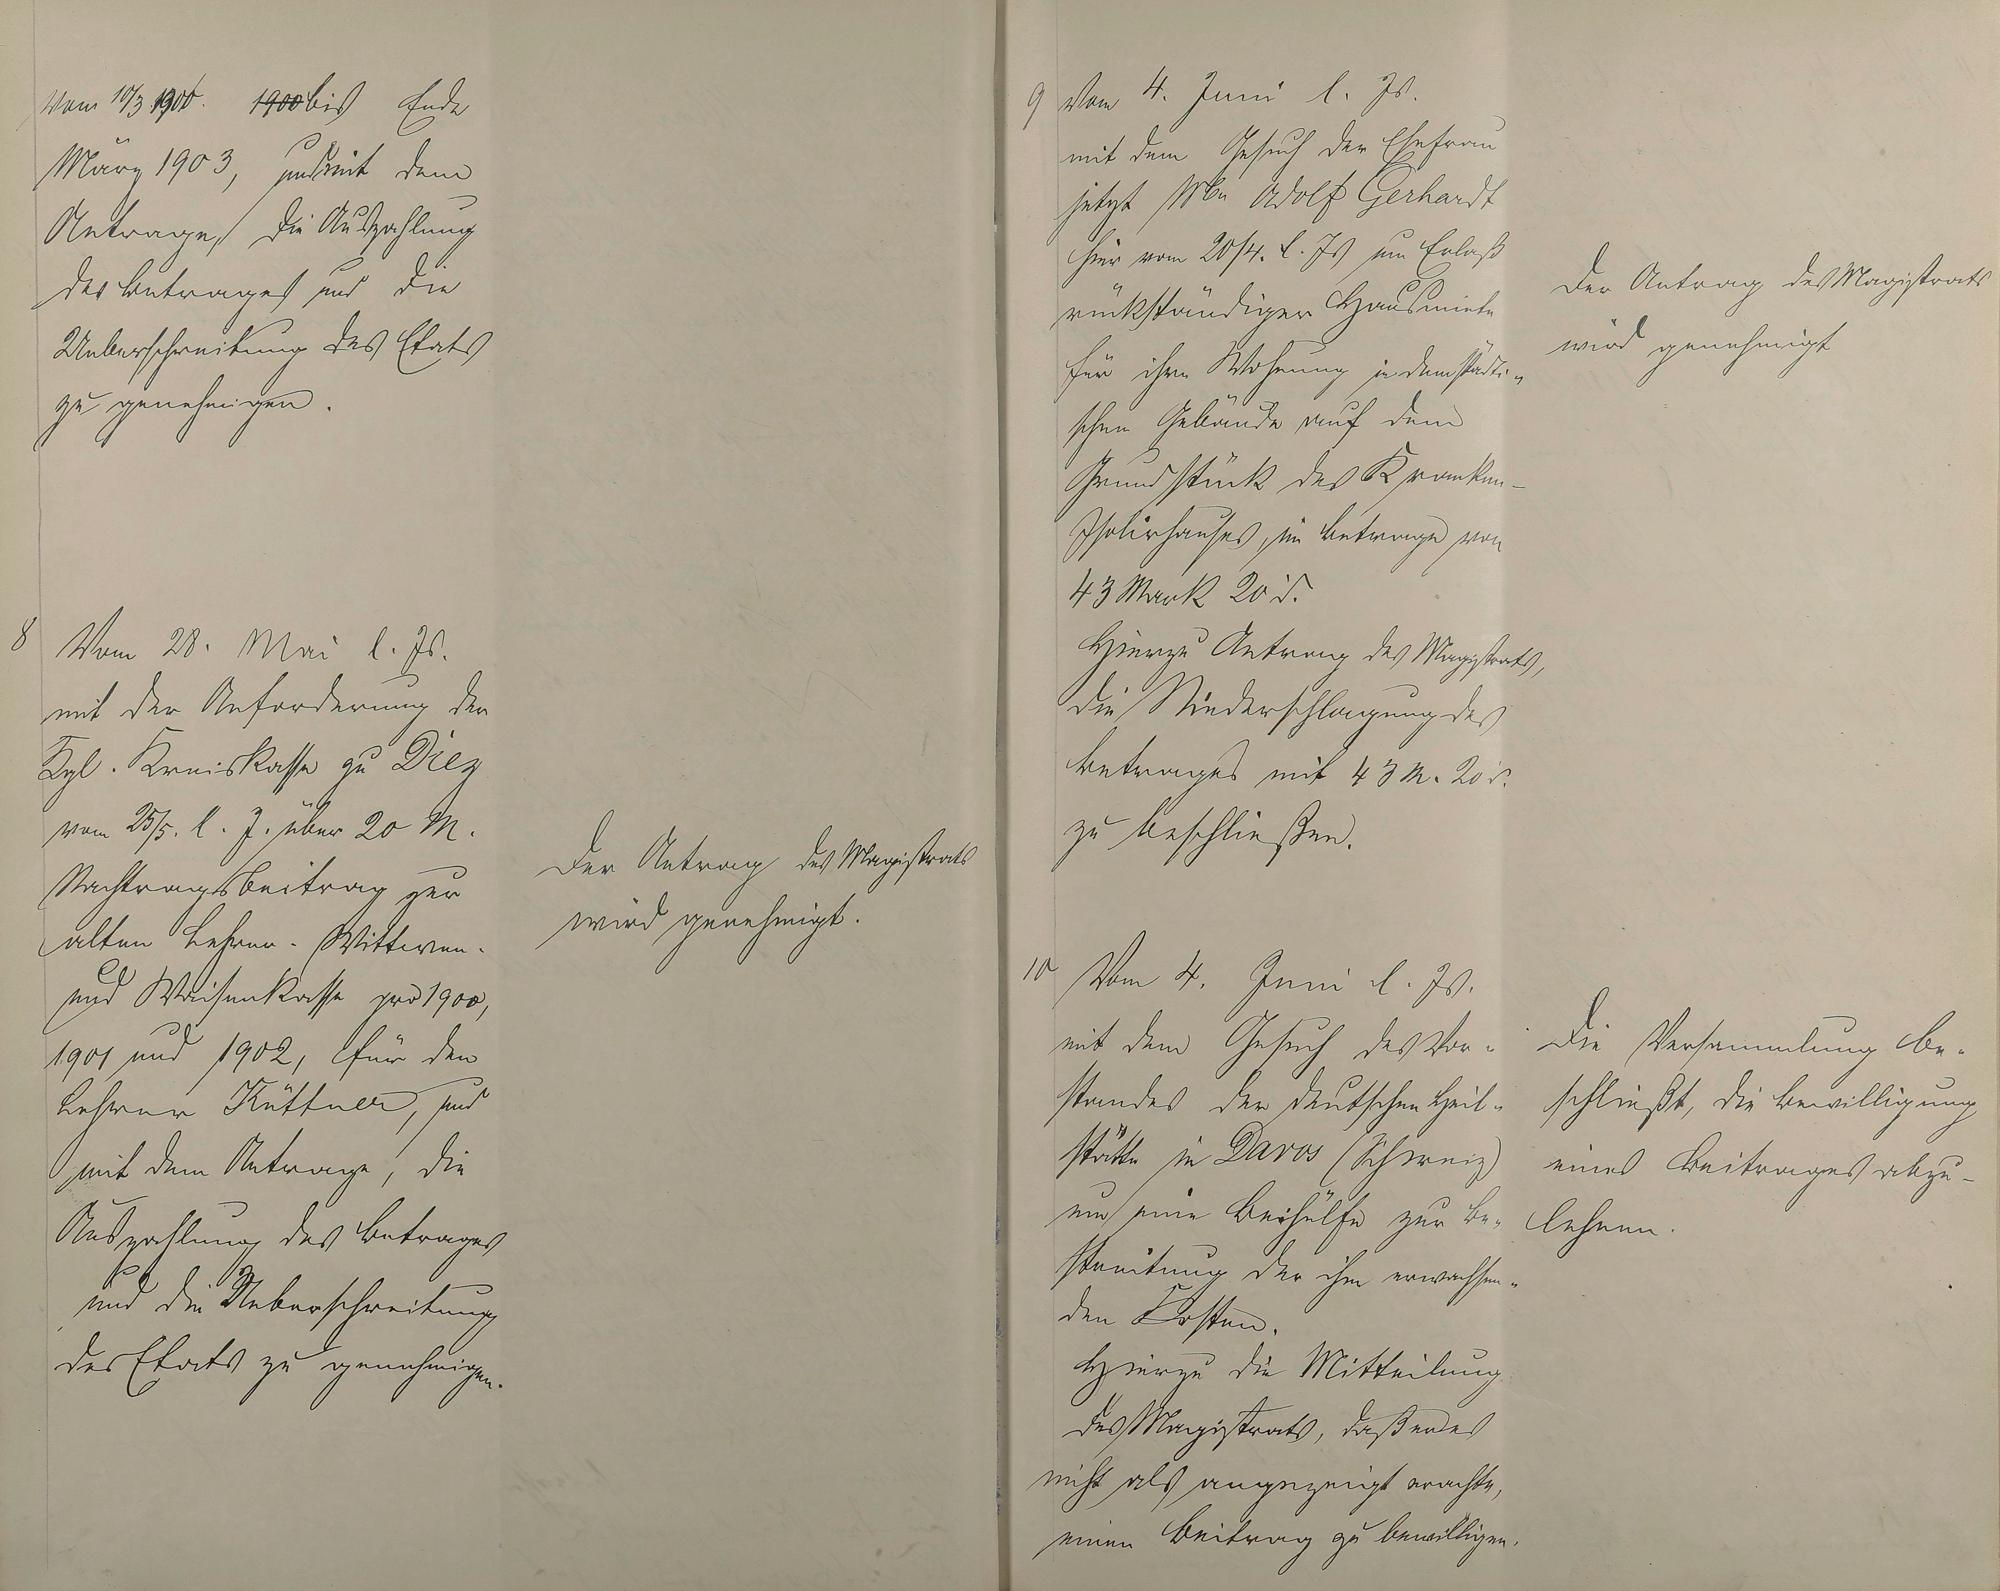 vom 10/3 1900. 1900 bis Ende
März 1903, und mit dem
Antrage, die Auszahlung
des Betrages und die
Ueberschreitung des Etats
zu genehmigen.
8 Vom 28. Mai l. Js.
mit der Anforderung der
Kgl. Kreiskasse zu Diez
vom 25/5. l. J. über 20 M.
Nachtragsbeitrag zur
alten Lehrer-Wittwen-
und Waisenkasse pro 1900,
1901 und 1902, für den
Lehrer Küttner, und
mit dem Antrage, die
Auszahlung des Betrages
und die Ueberschreitung
des Etats zu genehmigen.
Der Antrag des Magistrats
wird genehmigt.
9 Vom 4. Juni l. Js.
mit dem Gesuch der Ehefrau
jetzt Adolf Gerhardt
hier vom 20/4. l. Js um Erlaß
rückständiger Hausmiete
für ihre Wohnung in dem städti-
schen Gebäude auf dem
Grundstück des Kranken-
Isolirhauses, im Betrage von
43 Mark 20 d.
Hierzu Antrag des Magistrats,
die Niederschlagung des
Betrages mit 43 M. 20 d.
zu beschließen.
Der Antrag des Magistrats
wird genehmigt
10 Vom 4. Juni l. Js.
mit dem Gesuch des Vor-
standes der deutschen Heil-
stätte in Davos (Schweiz)
um eine Beihülfe zur Be-
streitung der ihm erwachsen-
den Kosten.
Hierzu die Mitteilung
des Magistrats, daß er es
nicht als angezeigt erachte,
einen Beitrag zu bewilligen.
Die Versammlung be-
schließt, die Bewilligung
eines Beitrages abzu-
lehnen.